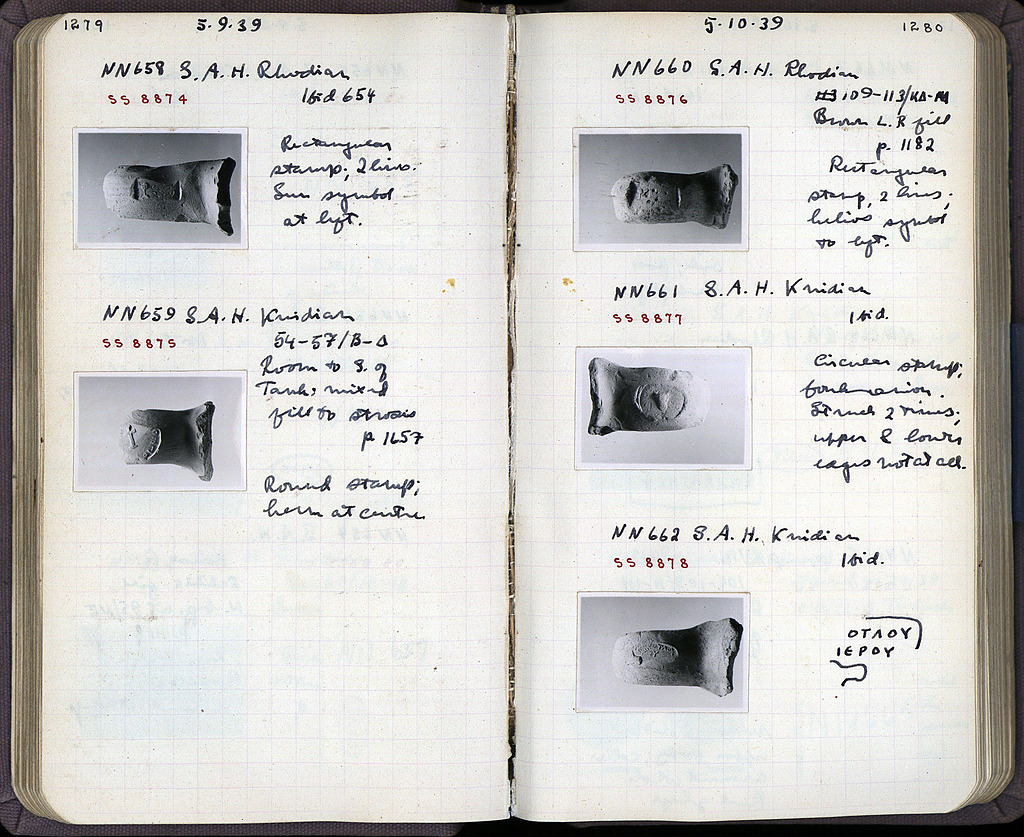 1279
5·9·39
NN658 S.A.H. Rhodian
SS 8874
Ibid 654
Rectangular
stamp; 2 lines.
Sun symbol
at left.
NN659 S.A.H. Knidian
SS 8875
54-57/B-Δ
Room to S. of
Tank; mixed
fill to strosis
p. 1657
Round stamp;
herm at centre
5·10·39
1280
NN660 S.A.H. Rhodian
SS 8876
109-113/ΚΔ-
Brown L.R fill
p. 1182
Rectangular
stamp, 2 lines;
helios symbol
to left.
NN661 S.A.H. Knidian
SS 8877
Ibid.
Circular stamp;
Struck 2 times;
upper & lower
edges not at all.
NN662 S.A.H. Knidian
SS 8878
Ibid.
ΟΤΛΟΥ
ΙΕΡΟΥ